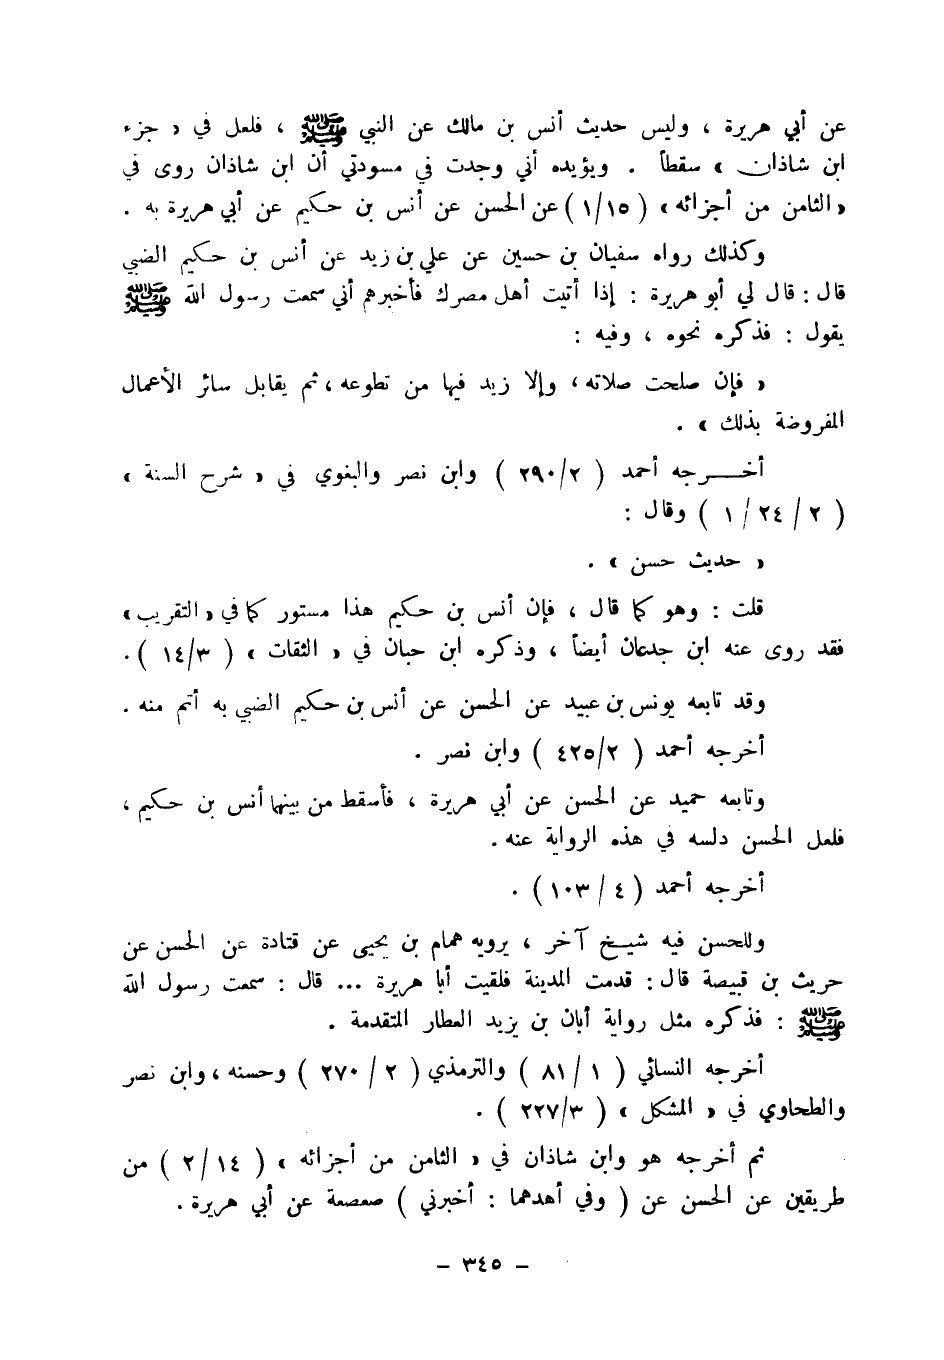 عن أبي هريرة ، وليس حديث أنس بن مالك عن النبي ﷺ ، فلعل في « جزء
ابن شاذان » سقطاً . ويؤيده أني وجدت في مسودتي أن ابن شاذان روى في
« الثامن من أجزائه » ( ١/١٥ ) عن الحسن عن أنس بن حكيم عن أبي هريرة به .
وكذلك رواه سفيان بن حسين عن علي بن زيد عن أنس بن حكيم الضبي
قال : قال لي أبو هريرة : إذا أتيت أهل مصرك فأخبرهم أني سمعت رسول الله ﷺ
يقول : فذكره نحوه ، وفيه :
« فإن صلحت صلاته ، وإلا زيد فيها من تطوعه ، ثم يقابل سائر الأعمال
المفروضة بذلك » .
أخـــرجه أحمد ( ٢٩٠/٢ ) وابن نصر والبغوي في « شرح السنة »
( ٢ / ٢٤ / ١ ) وقال :
« حديث حسن » .
قلت : وهو كما قال ، فإن أنس بن حكيم هذا مستور كما في « التقريب »
فقد روى عنه ابن جدعان أيضاً ، وذكره ابن حبان في « الثقات » ( ١٤/٣ ) .
وقد تابعه يونس بن عبيد عن الحسن عن أنس بن حكيم الضبي به أتم منه .
أخرجه أحمد ( ٤٢٥/٢ ) وابن نصر .
وتابعه حميد عن الحسن عن أبي هريرة ، فأسقط من بينهما أنس بن حكيم ،
فلعل الحسن دلسه في هذه الرواية عنه .
أخرجه أحمد ( ٤ / ١٠٣ ) .
وللحسن فيه شيخ آخر ، يرويه همام بن يحيى عن قتادة عن الحسن عن
حريث بن قبيصة قال : قدمت المدينة فلقيت أبا هريرة ... قال : سمعت رسول الله
ﷺ : فذكره مثل رواية أبان بن يزيد العطار المتقدمة .
أخرجه النسائي ( ١ / ٨١ ) والترمذي ( ٢ / ٢٧٠ ) وحسنه ، وابن نصر
والطحاوي في « المشكل » ( ٢٢٧/٣ ) .
ثم أخرجه هو وابن شاذان في « الثامن من أجزائه » ( ١٤ / ٢ ) من
طريقين عن الحسن عن ( وفي أهدهما : أخبرني ) صعصعة عن أبي هريرة .
- ٣٤٥ -